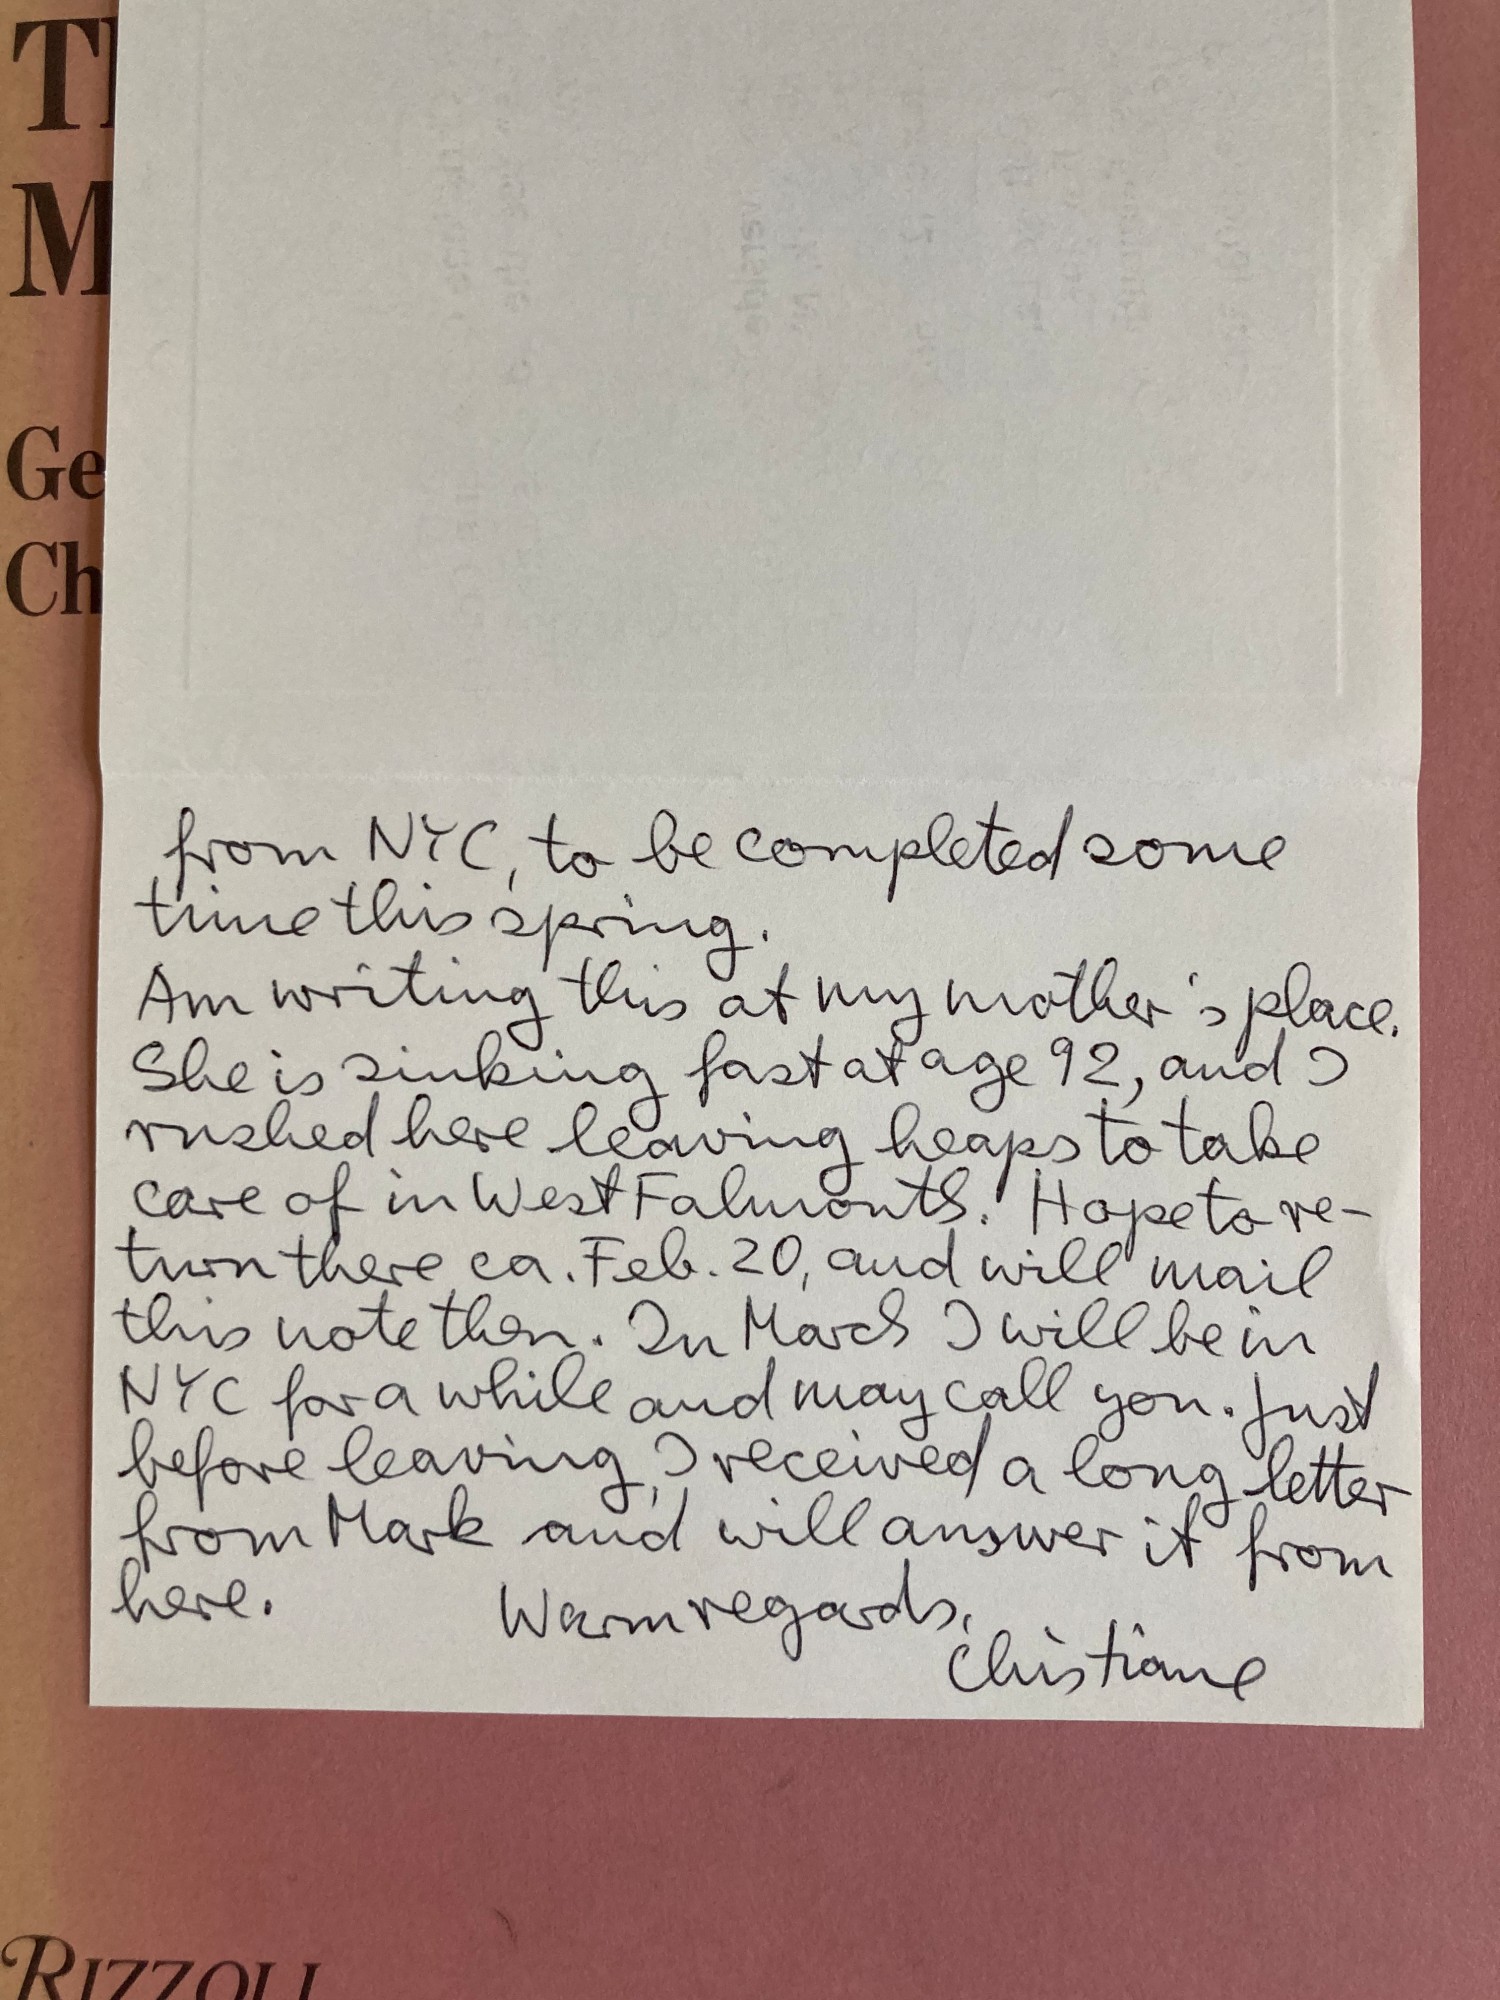 Th
M
Ge
Ch
from NYC, to be completed some
time this spring.
Am writing this at my mother's place.
She is sinking fast at age 92, and I
rushed here leaving heaps to take
care of in West Falmouth. Hope to re-
turn there ca. Feb. 20, and will mail
this note then. In March I will be in
NYC for a while and may call you. Just
before leaving, I received a long letter
from Mark and will answer it from
here.
Warm regards,
Christiane
RIZZOLI